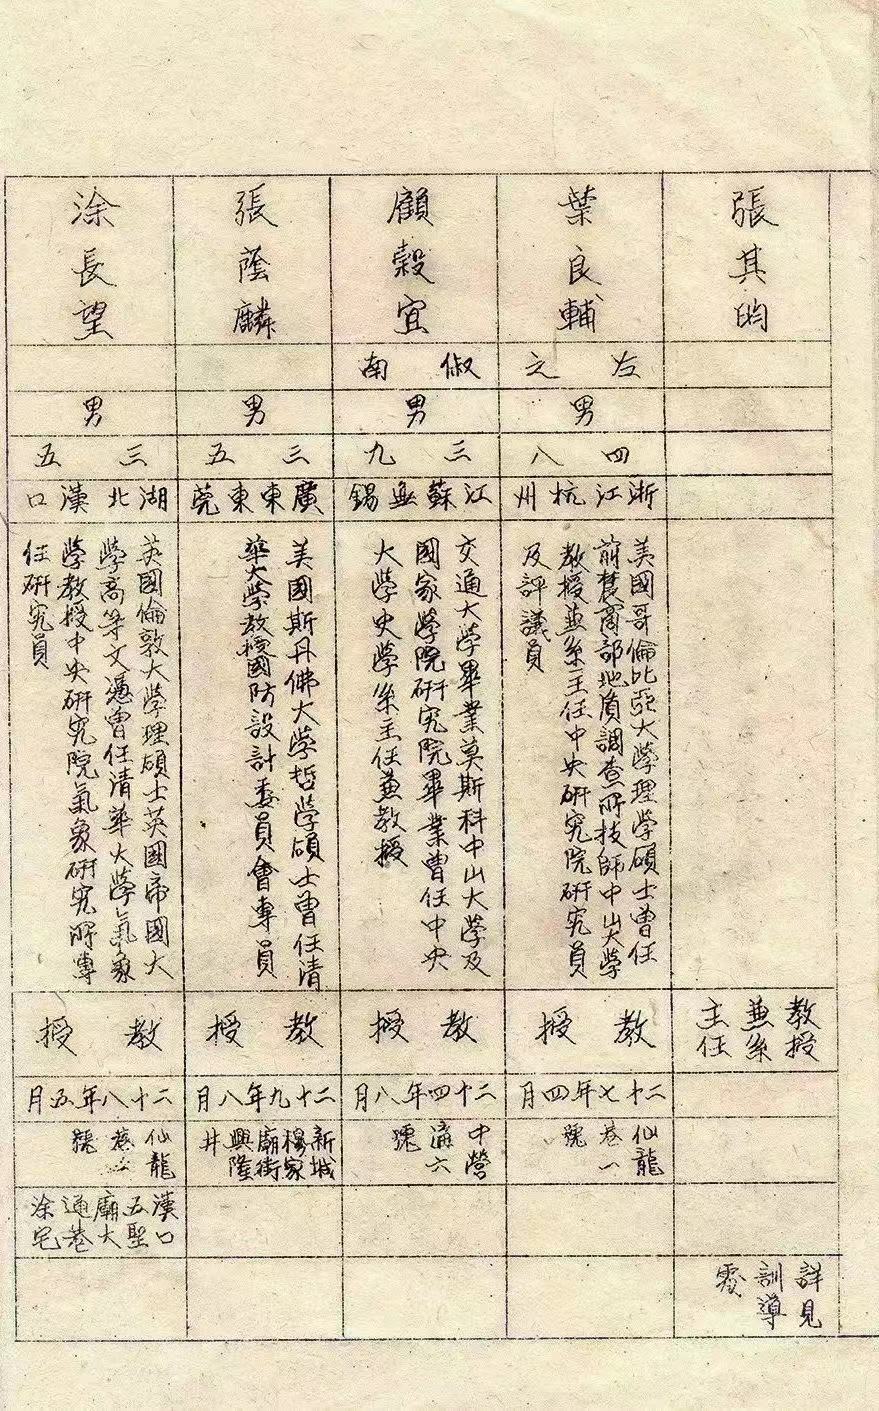 張其昀
教授
兼系
主任
詳見
訓導
葉良輔
左之
男
四八
浙江杭州
美國哥倫比亞大學理學碩士曾任
前農商部地質調查所技師中山大學
教授兼系主任中央研究院研究員
及評議員
教授
二十七年四月
仙龍
巷一
號
顧穀宜
俶南
男
三九
江蘇無錫
交通大學畢業莫斯科中山大學及
國家學院研究院畢業曾任中央
大學史學系主任兼教授
教授
二十四年八月
中營
溝六
號
張蔭麟
男
三五
廣東東莞
美國斯丹佛大學哲學碩士曾任清
華大學教授國防設計委員會專員
教授
二十九年八月
新城
楊家
廟街
興隆
井
涂長望
男
三五
湖北漢口
英國倫敦大學理碩士英國帝國大
學高等文憑曾任清華大學氣象
學教授中央研究院氣象研究所專
任研究員
教授
二十八年五月
仙龍
巷
號
漢口
五聖
廟大
通巷
涂宅